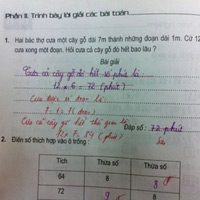 Phần II. Trình bày lời giải các bài toán
1. Hai bác thợ cưa một cây gỗ dài 7m thành những đoạn dài 1m. Cứ 12
cưa xong một đoạn. Hỏi cưa cả cây gỗ đó hết bao lâu ?
Bài giải
Cưa cả cây gỗ đó hết số phút là:
12 x 6 = 72 (phút)
Cưa
7 : 1 = 7 (đoạn)
Cưa cả cây gỗ hết thời gian là
12 x 7 = 84 (phút)
Đáp số: 72 phút
2. Điền số thích hợp vào ô trống :
Tích Thừa số Thừa số
64 8 8
72 9